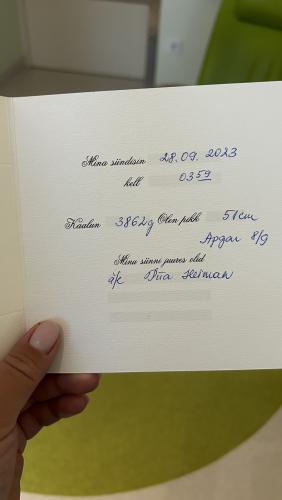 Mina sündisin 28.09.2023
kell 03 59
Kaalun 3862g Olen pikk 51cm
Apgar 8/9
Minu sünni juures olid
ä/e Piia Heiman